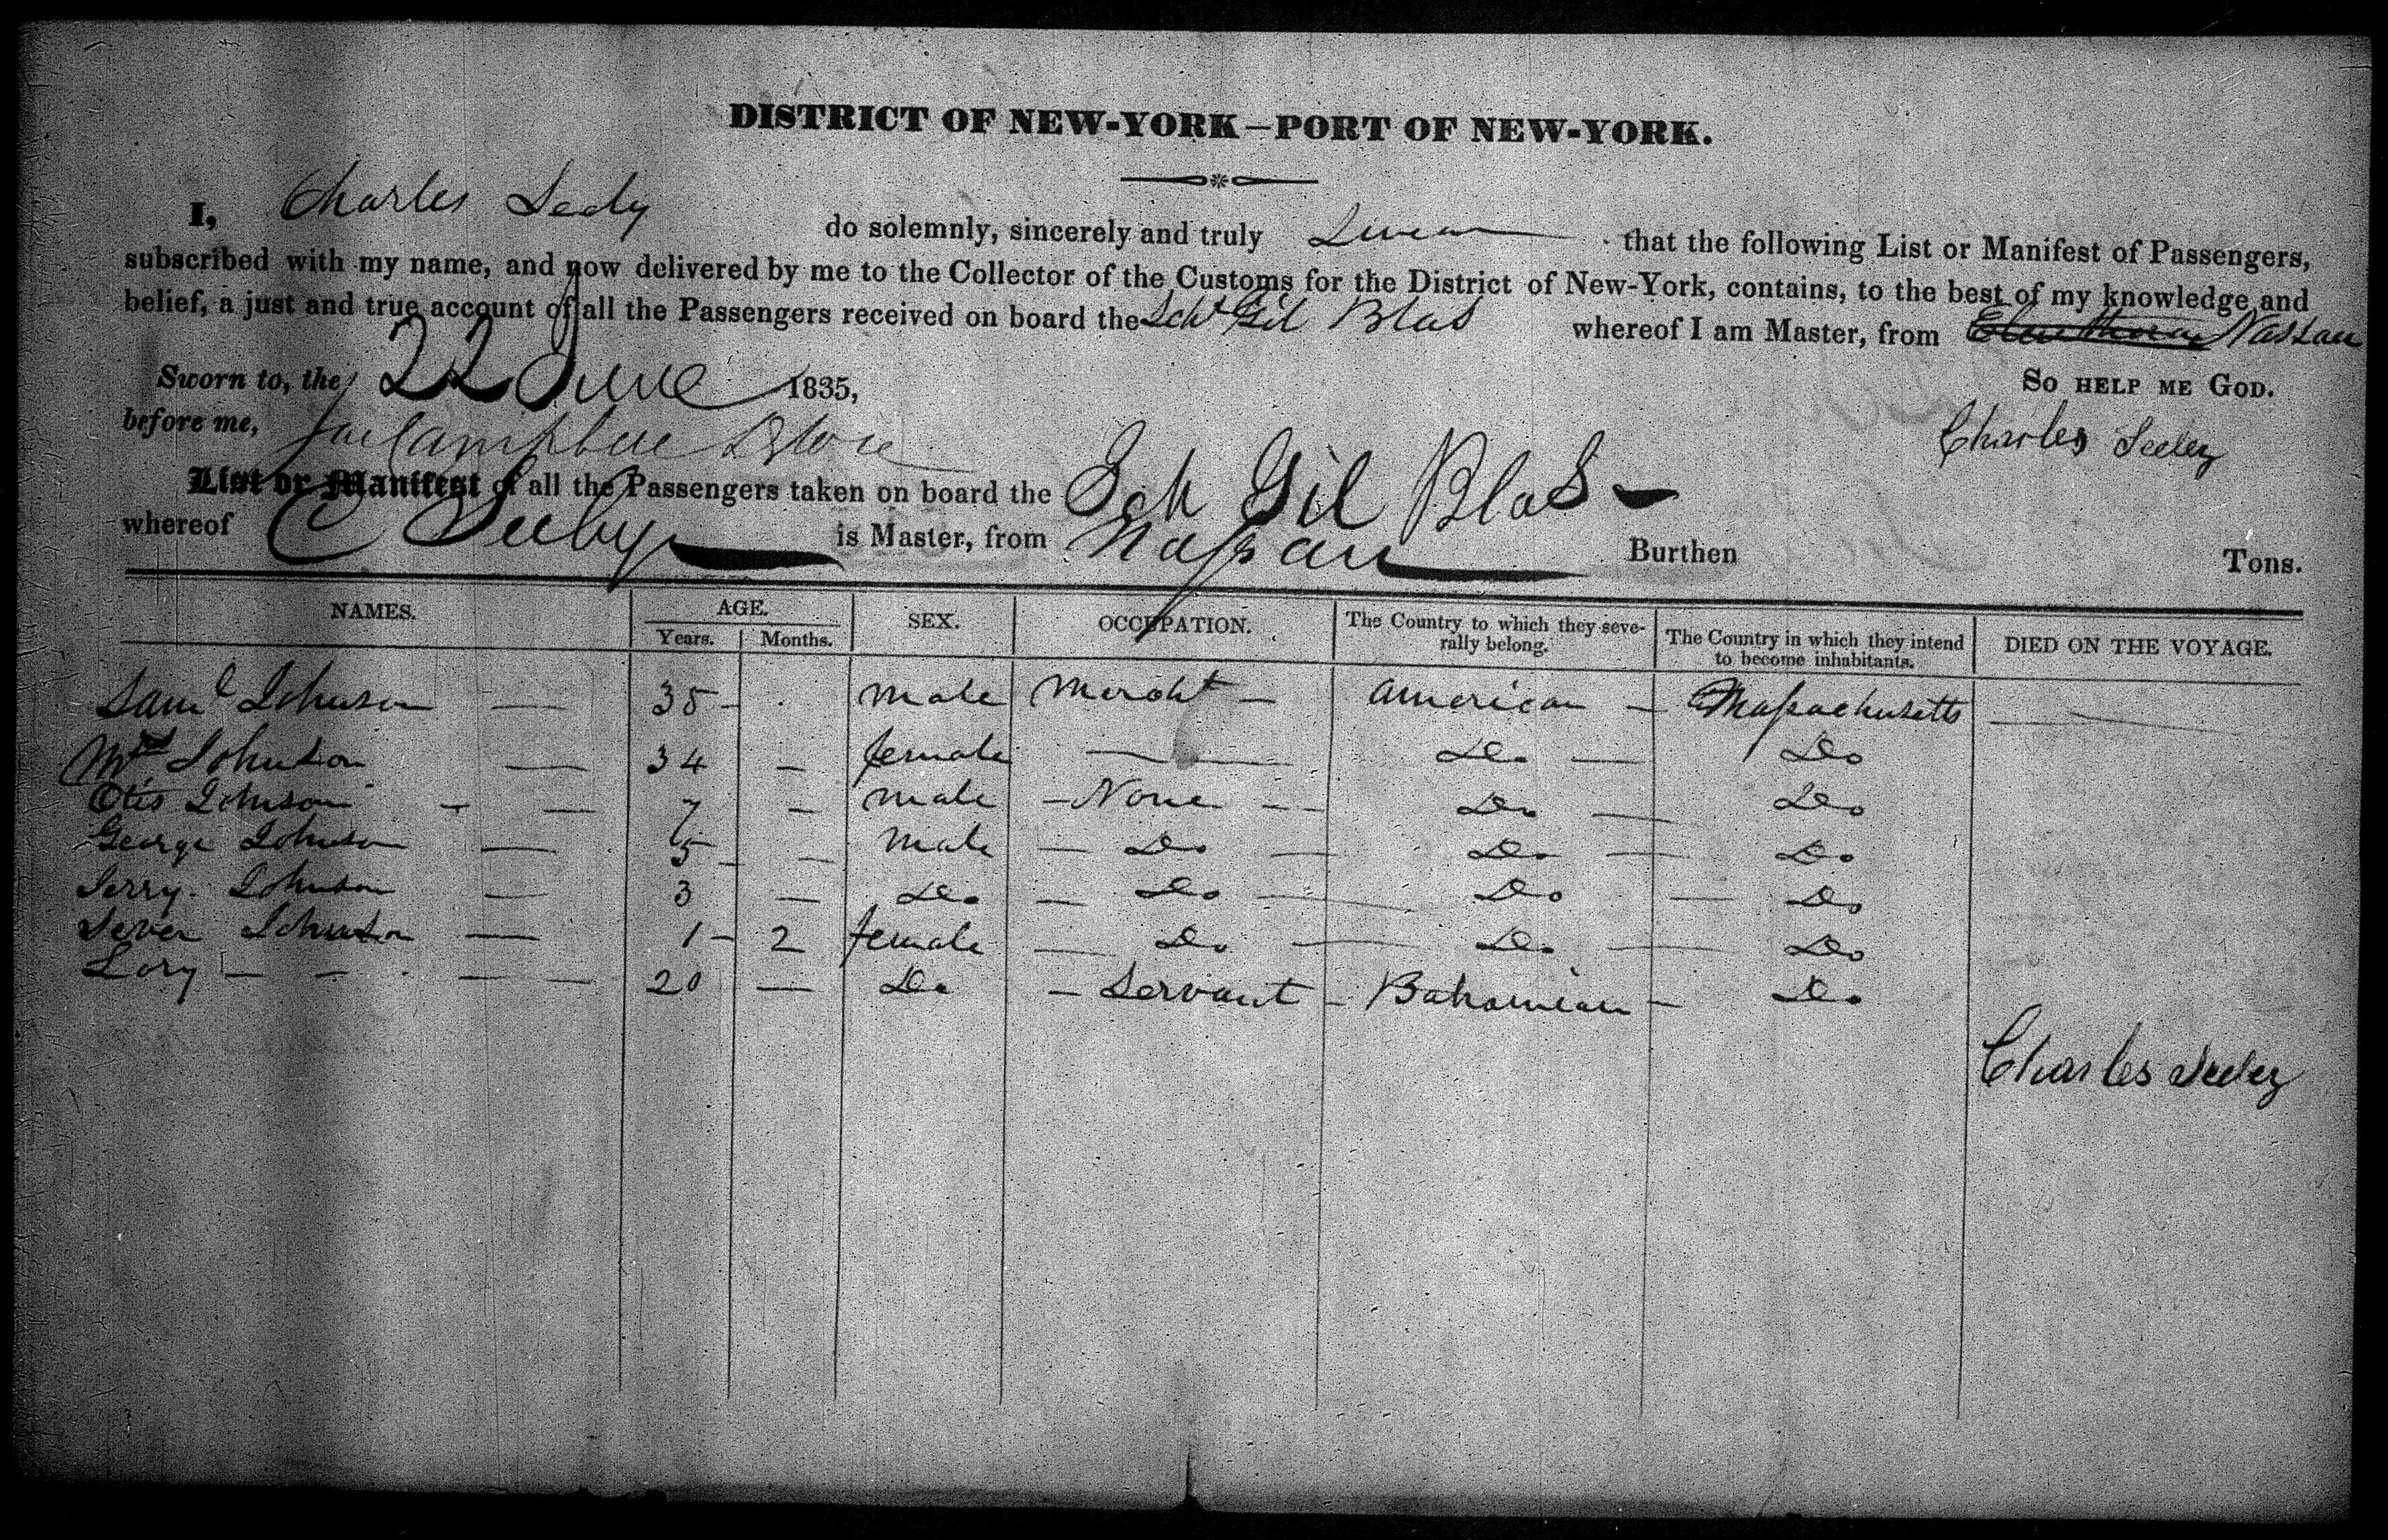 DISTRICT OF NEW-YORK—PORT OF NEW-YORK.
I, Charles Seely do solemnly, sincerely and truly Swear that the following List or Manifest of Passengers,
subscribed with my name, and now delivered by me to the Collector of the Customs for the District of New-York, contains, to the best of my knowledge and
belief, a just and true account of all the Passengers received on board the Schr Gil Blas whereof I am Master, from Nassau
Sworn to, the 22 June 1835, So help me God.
before me, Charles Seeley
List or Manifest of all the Passengers taken on board the Sch Gil Blas
whereof C Seeby is Master, from Nassau Burthen Tons.
NAMES. AGE. Years. Months. SEX. OCCUPATION. The Country to which they severally belong. The Country in which they intend to become inhabitants. DIED ON THE VOYAGE.
Saml Johnson — 35 - male Mercht — American — Massachusetts —
Mrs Johnson — 34 — female — Do — Do
Otis Johnson - — 7 — male — None — Do — Do
George Johnson — 5 — — male — Do — Do — Do
Jerry Johnson — 3 — Do — Do — Do — Do
Johnson — 1 - 2 female — Do — Do — Do
Lory — — — 20 — Do — Servant — Bahamian — Do
Charles Seeley